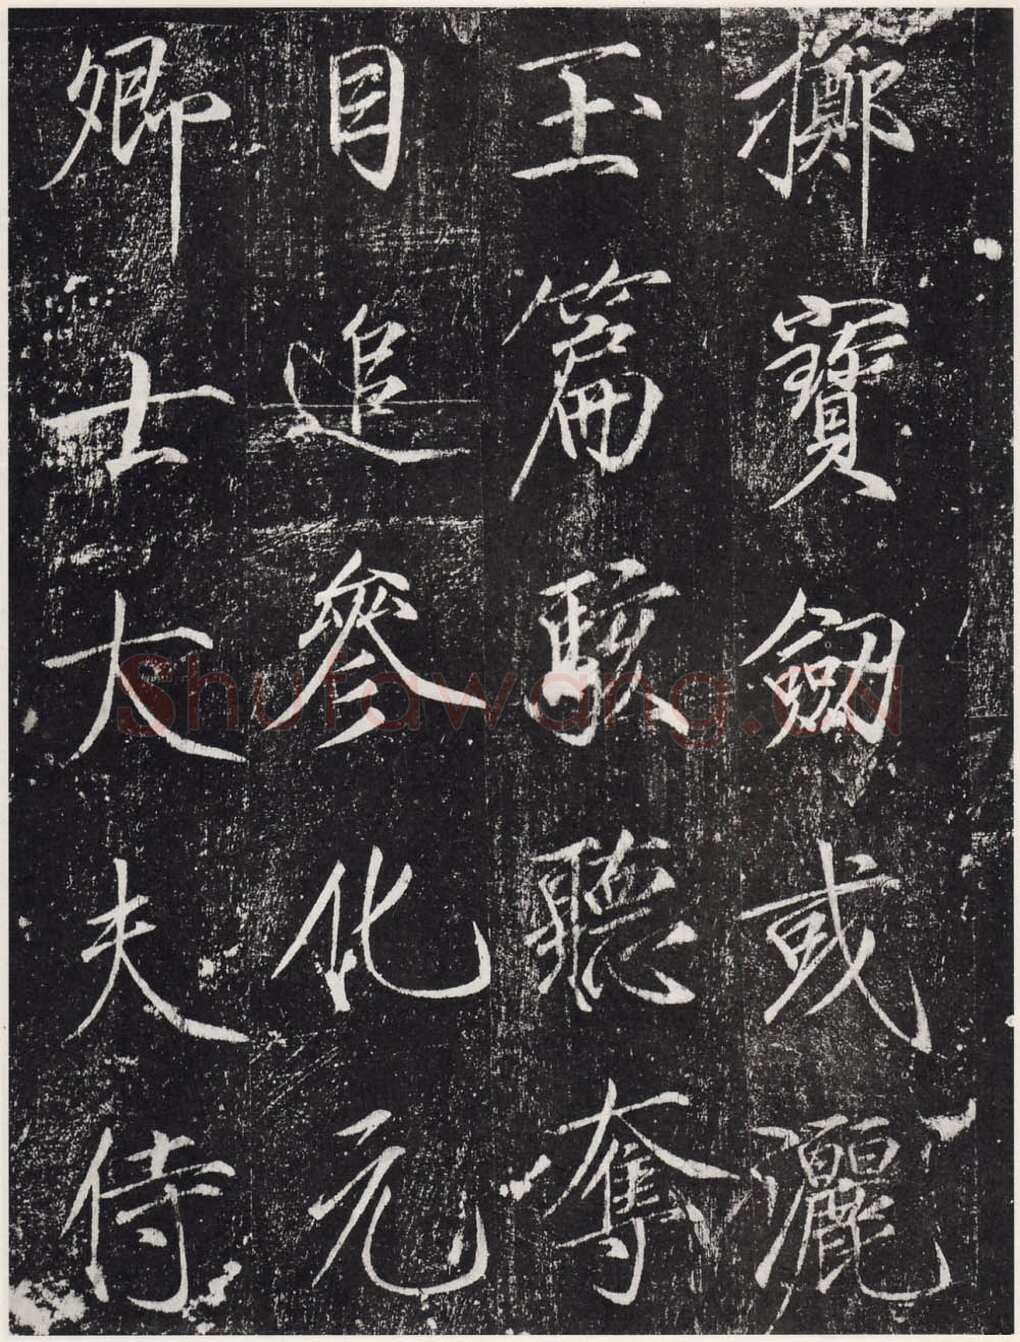 擲寶劍或灑
玉篇駭聽奪
目追參化元
卿士大夫侍
Shufawang.CN